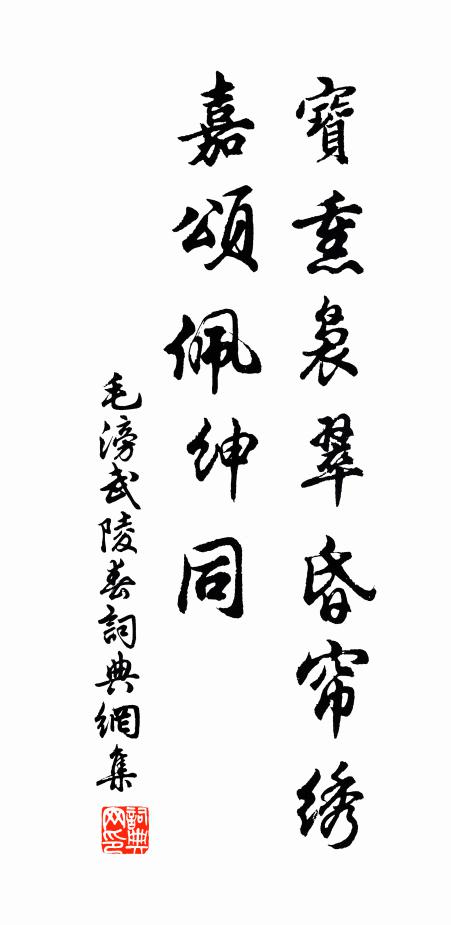 寶熏裊翠昏帘绣
嘉頌佩紳同
毛滂武陵春詞典網集
詞典网印